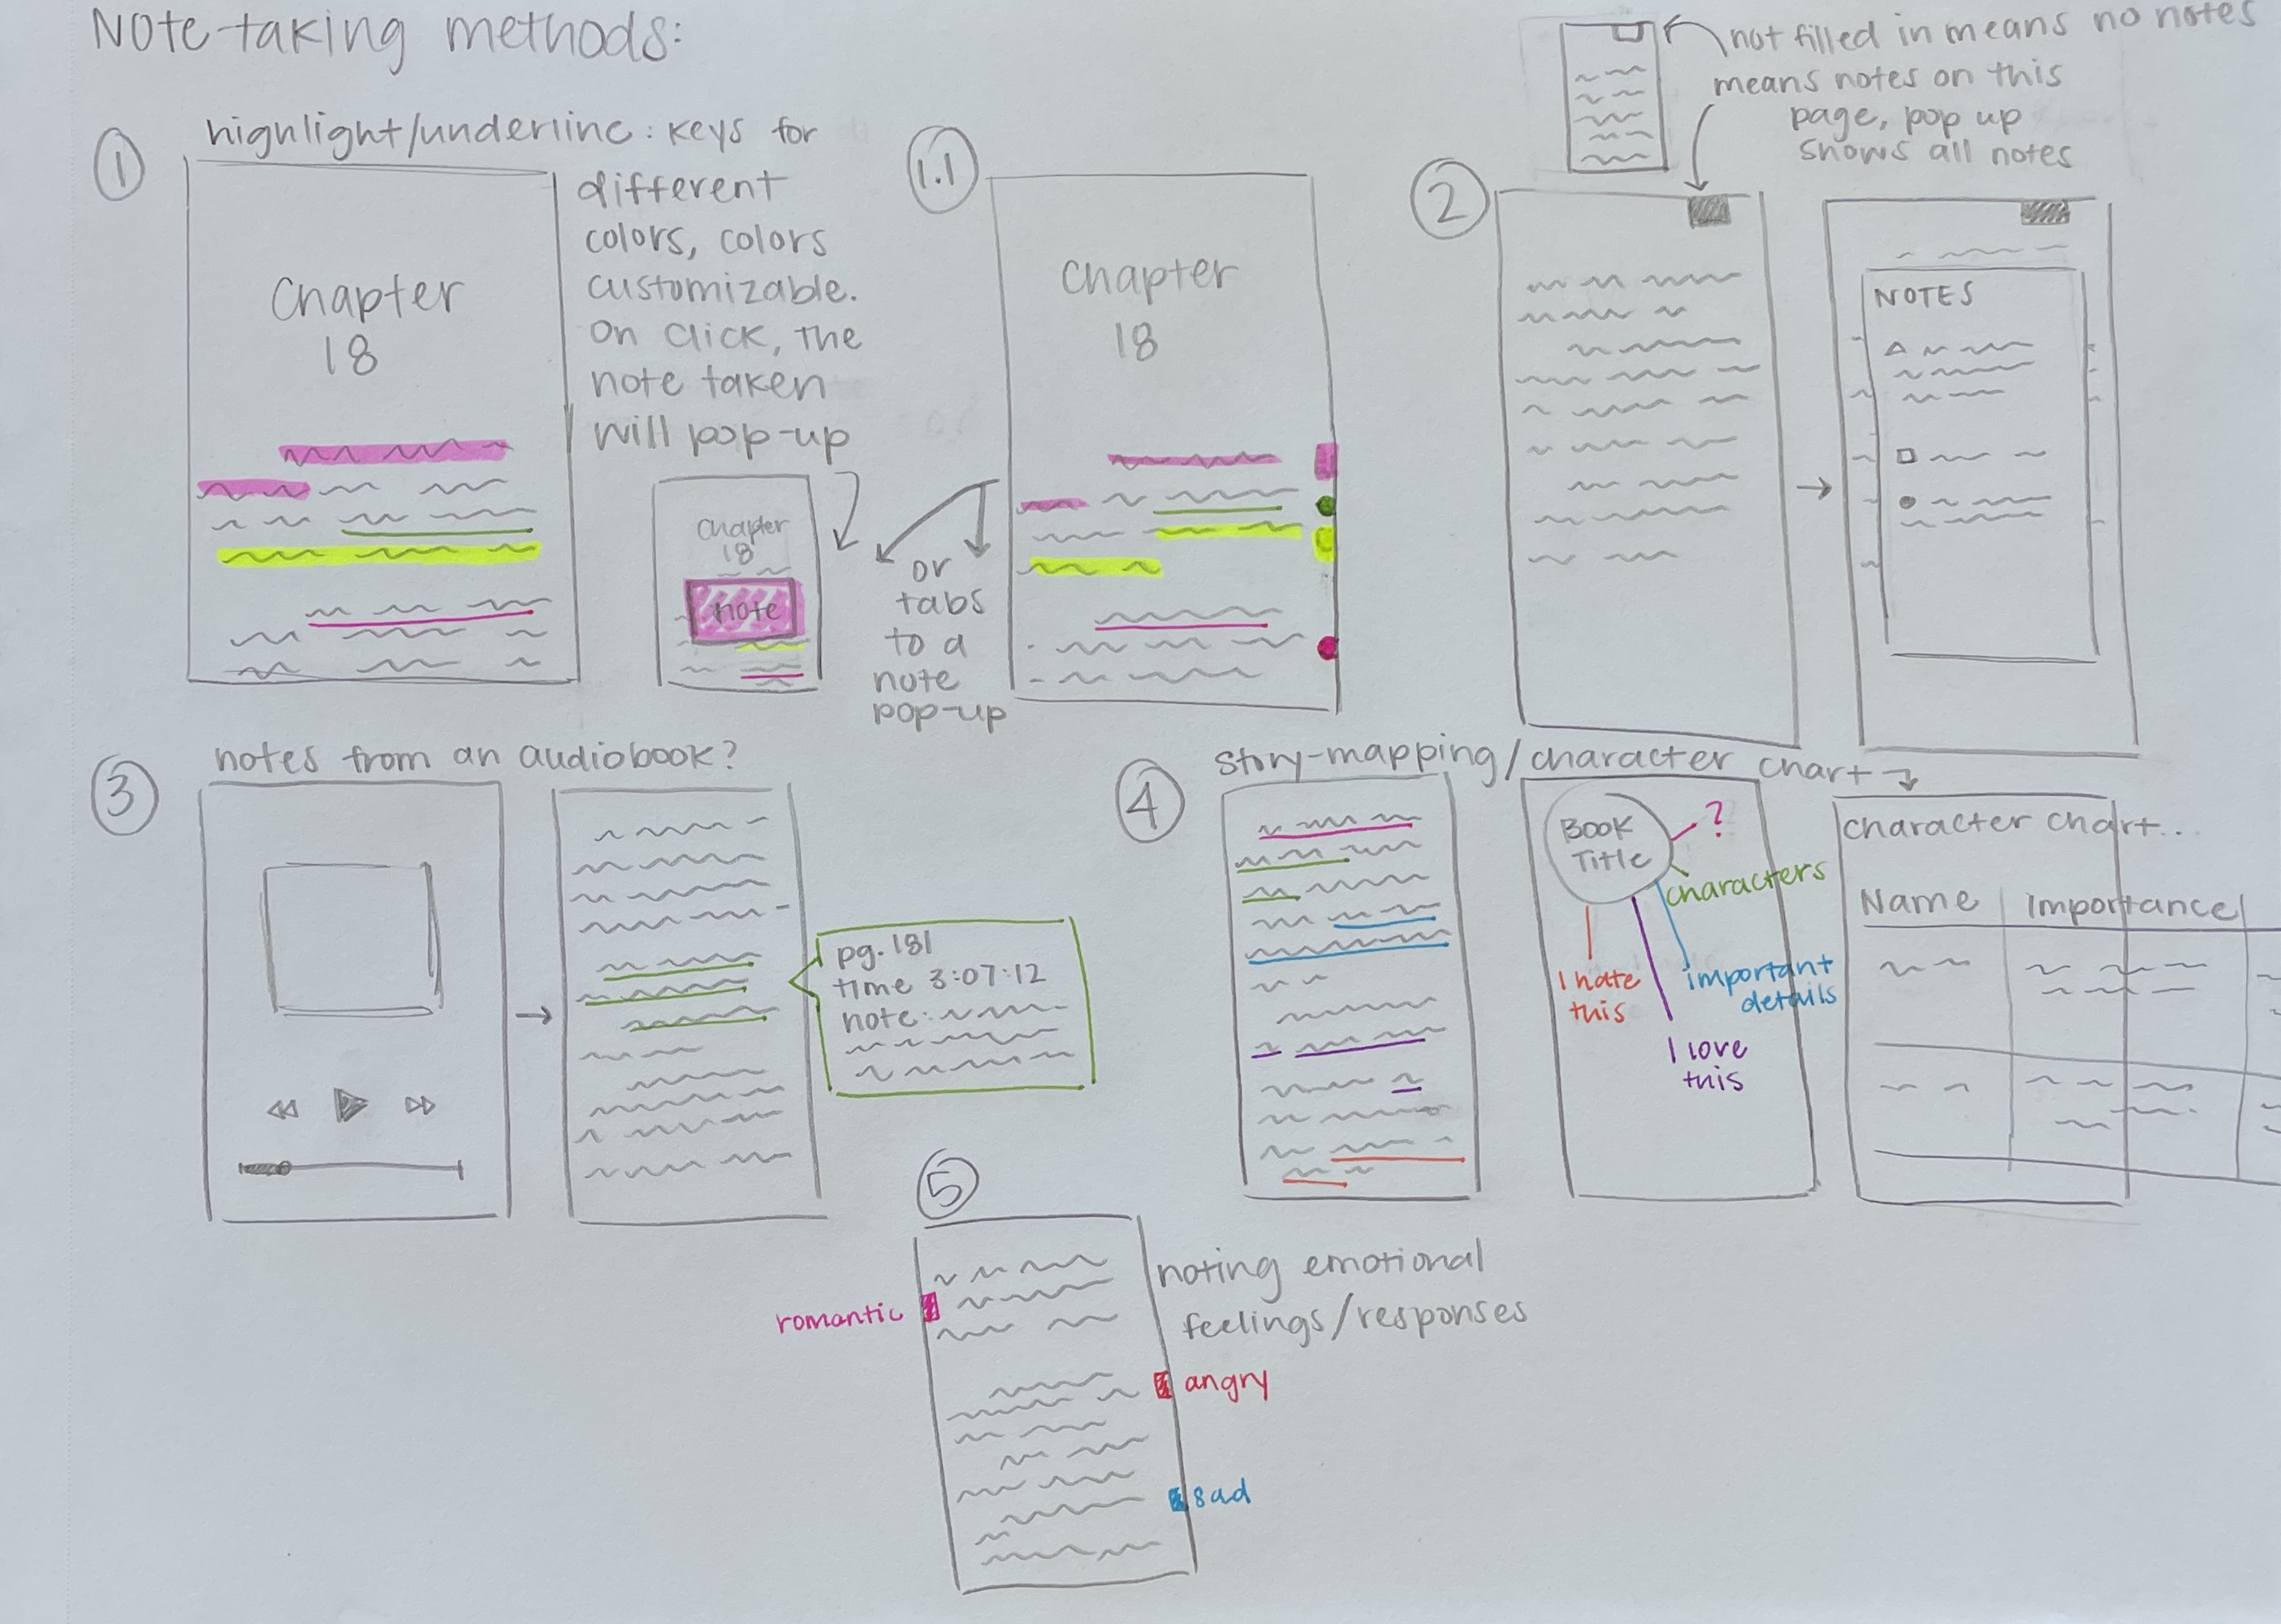 Note-taking methods:
1
highlight/underline: keys for
different
colors, colors
customizable.
On click, the
note taken
will pop-up
Chapter
18
Chapter
18
note
1.1
Chapter
18
or
tabs
to a
note
pop-up
not filled in means no notes
means notes on this
page, pop up
shows all notes
2
NOTES
3
notes from an audiobook?
pg. 181
time 3:07:12
note:
4
story-mapping/character chart
Book
Title
?
characters
important
details
I love
this
I hate
this
character chart..
Name
importance
5
noting emotional
feelings/responses
romantic
angry
sad